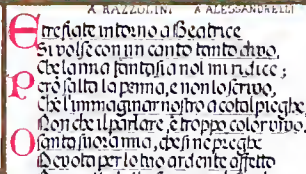 A RAZZOLINI A ALESSANDRELLI
E tre fiate intorno a Beatrice
Si volse con un canto tanto divo,
Che la mia fantasia nol mi ridice;
Però salta la penna, e non lo scrivo,
Chè l'immaginar nostro a cotai pieghe,
Non che il parlare, è troppo color vivo.
O santa suora mia, che sì ne preghe
Devota per lo tuo ardente affetto